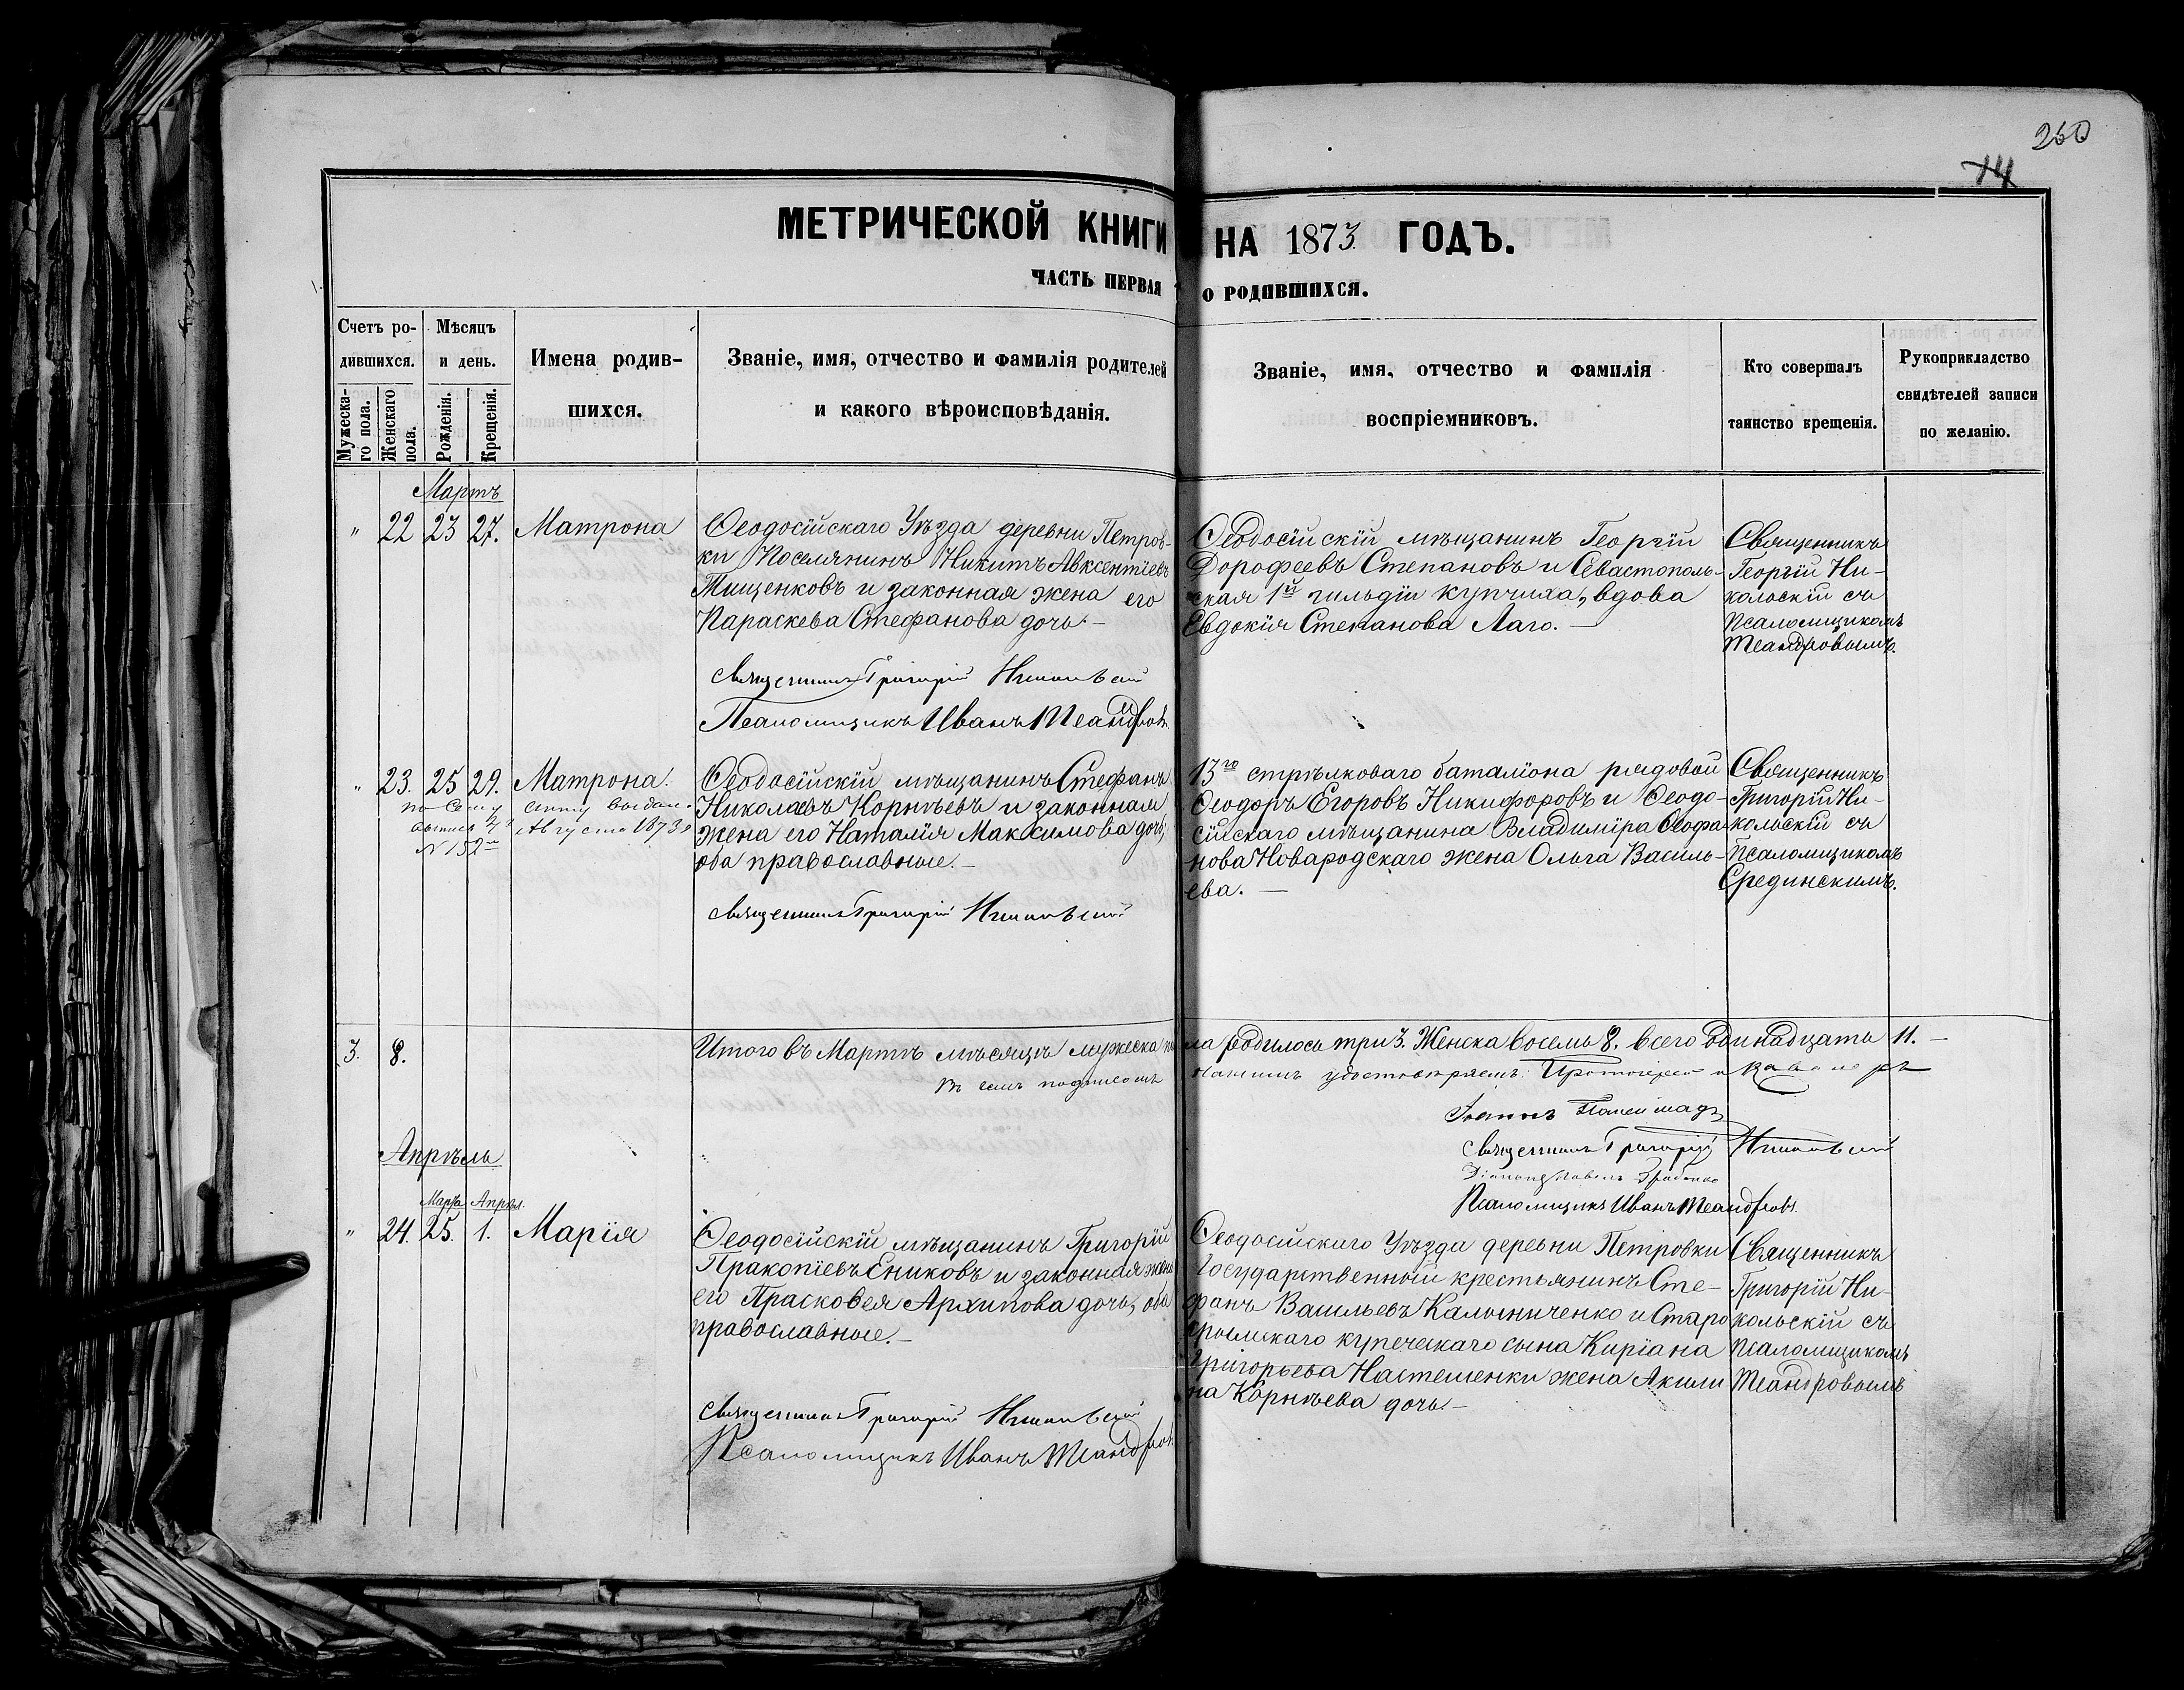 260
14
МЕТРИЧЕСКОЙ КНИГИ НА 1873 ГОДЪ.
ЧАСТЬ ПЕРВАЯ О РОДИВШИХСЯ.
Счетъ ро-
дившихся.
Мужеска-
го пола.
Женскаго
пола.
Мѣсяцъ
и день.
Рожденія.
Крещенія.
Имена родив-
шихся.
Званіе, имя, отчество и фамилія родителей
и какого вѣроисповѣданія.
Званіе, имя, отчество и фамилія
воспріемниковъ.
Кто совершалъ
таинство крещенія.
Рукоприкладство
свидѣтелей записи
по желанію.
Мартъ
" 22 23 27. Матрона
Ѳеодосійскаго Уѣзда деревни Петров-
ки Поселянинъ Никитъ Авксентіевъ
Тищенковъ и законная жена его
Параскева Стефанова дочь.-
Священникъ Григорій Никольскій
Псаломщикъ Иванъ Теандровъ
Ѳеодосійскій мѣщанинъ Георгій
Дорофеевъ Степановъ и Севастополь-
ская 1й гильдіи купчиха, вдова
Евдокія Степанова Лаго.-
Священникъ
Георгій Ни-
кольскій съ
Псаломщикомъ
Теандровымъ.
" 23. 25 29. Матрона.
по сему акту выдан.
Августа 1873
N 152
Ѳеодосійскій мѣщанинъ Стефанъ
Николаевъ Корнѣевъ и законная
жена его Наталія Максимова дочь,
оба православные.-
Священникъ Григорій Никольскій
13го стрѣлковаго баталіона рядовой
Ѳеодоръ Егоровъ Никифоровъ и Ѳеодо-
сійскаго мѣщанина Владиміра Ѳеофа-
нова Новародскаго жена Ольга Василь-
ева.-
Священникъ
Григорій Ни-
кольскій съ
Псаломщикомъ
Срединскимъ.
3. 8. Итого въ Мартѣ мѣсяцѣ мужеска по
ла родилось три 3. Женска восемь 8. всего одинадцать 11.-
въ семъ подписомъ
нашимъ удостовѣряемъ: Протоіерей и Кавалеръ
Іоаннъ
Священникъ Григорій Никольскій
Псаломщикъ Иванъ Теандровъ.
Апрѣль
Марта Апрѣл.
" 24. 25. 1. Марія
Ѳеодосійскій мѣщанинъ Григорій
Пракопіевъ Ениковъ и законная жена
его Прасковея Архипова дочь, оба
православные.-
Священникъ Григорій Никольскій
Псаломщикъ Иванъ Теандровъ
Ѳеодосійскаго Уѣзда деревни Петровки
Государственный крестьянинъ Сте-
фанъ Васильевъ Калюниченко и Старо
крымскаго купеческаго сына Киріана
Григорьева Настешенки жена Акили
на Корнѣева дочь.-
Священникъ
Григорій Ни-
кольскій съ
Псаломщикомъ
Теандровымъ